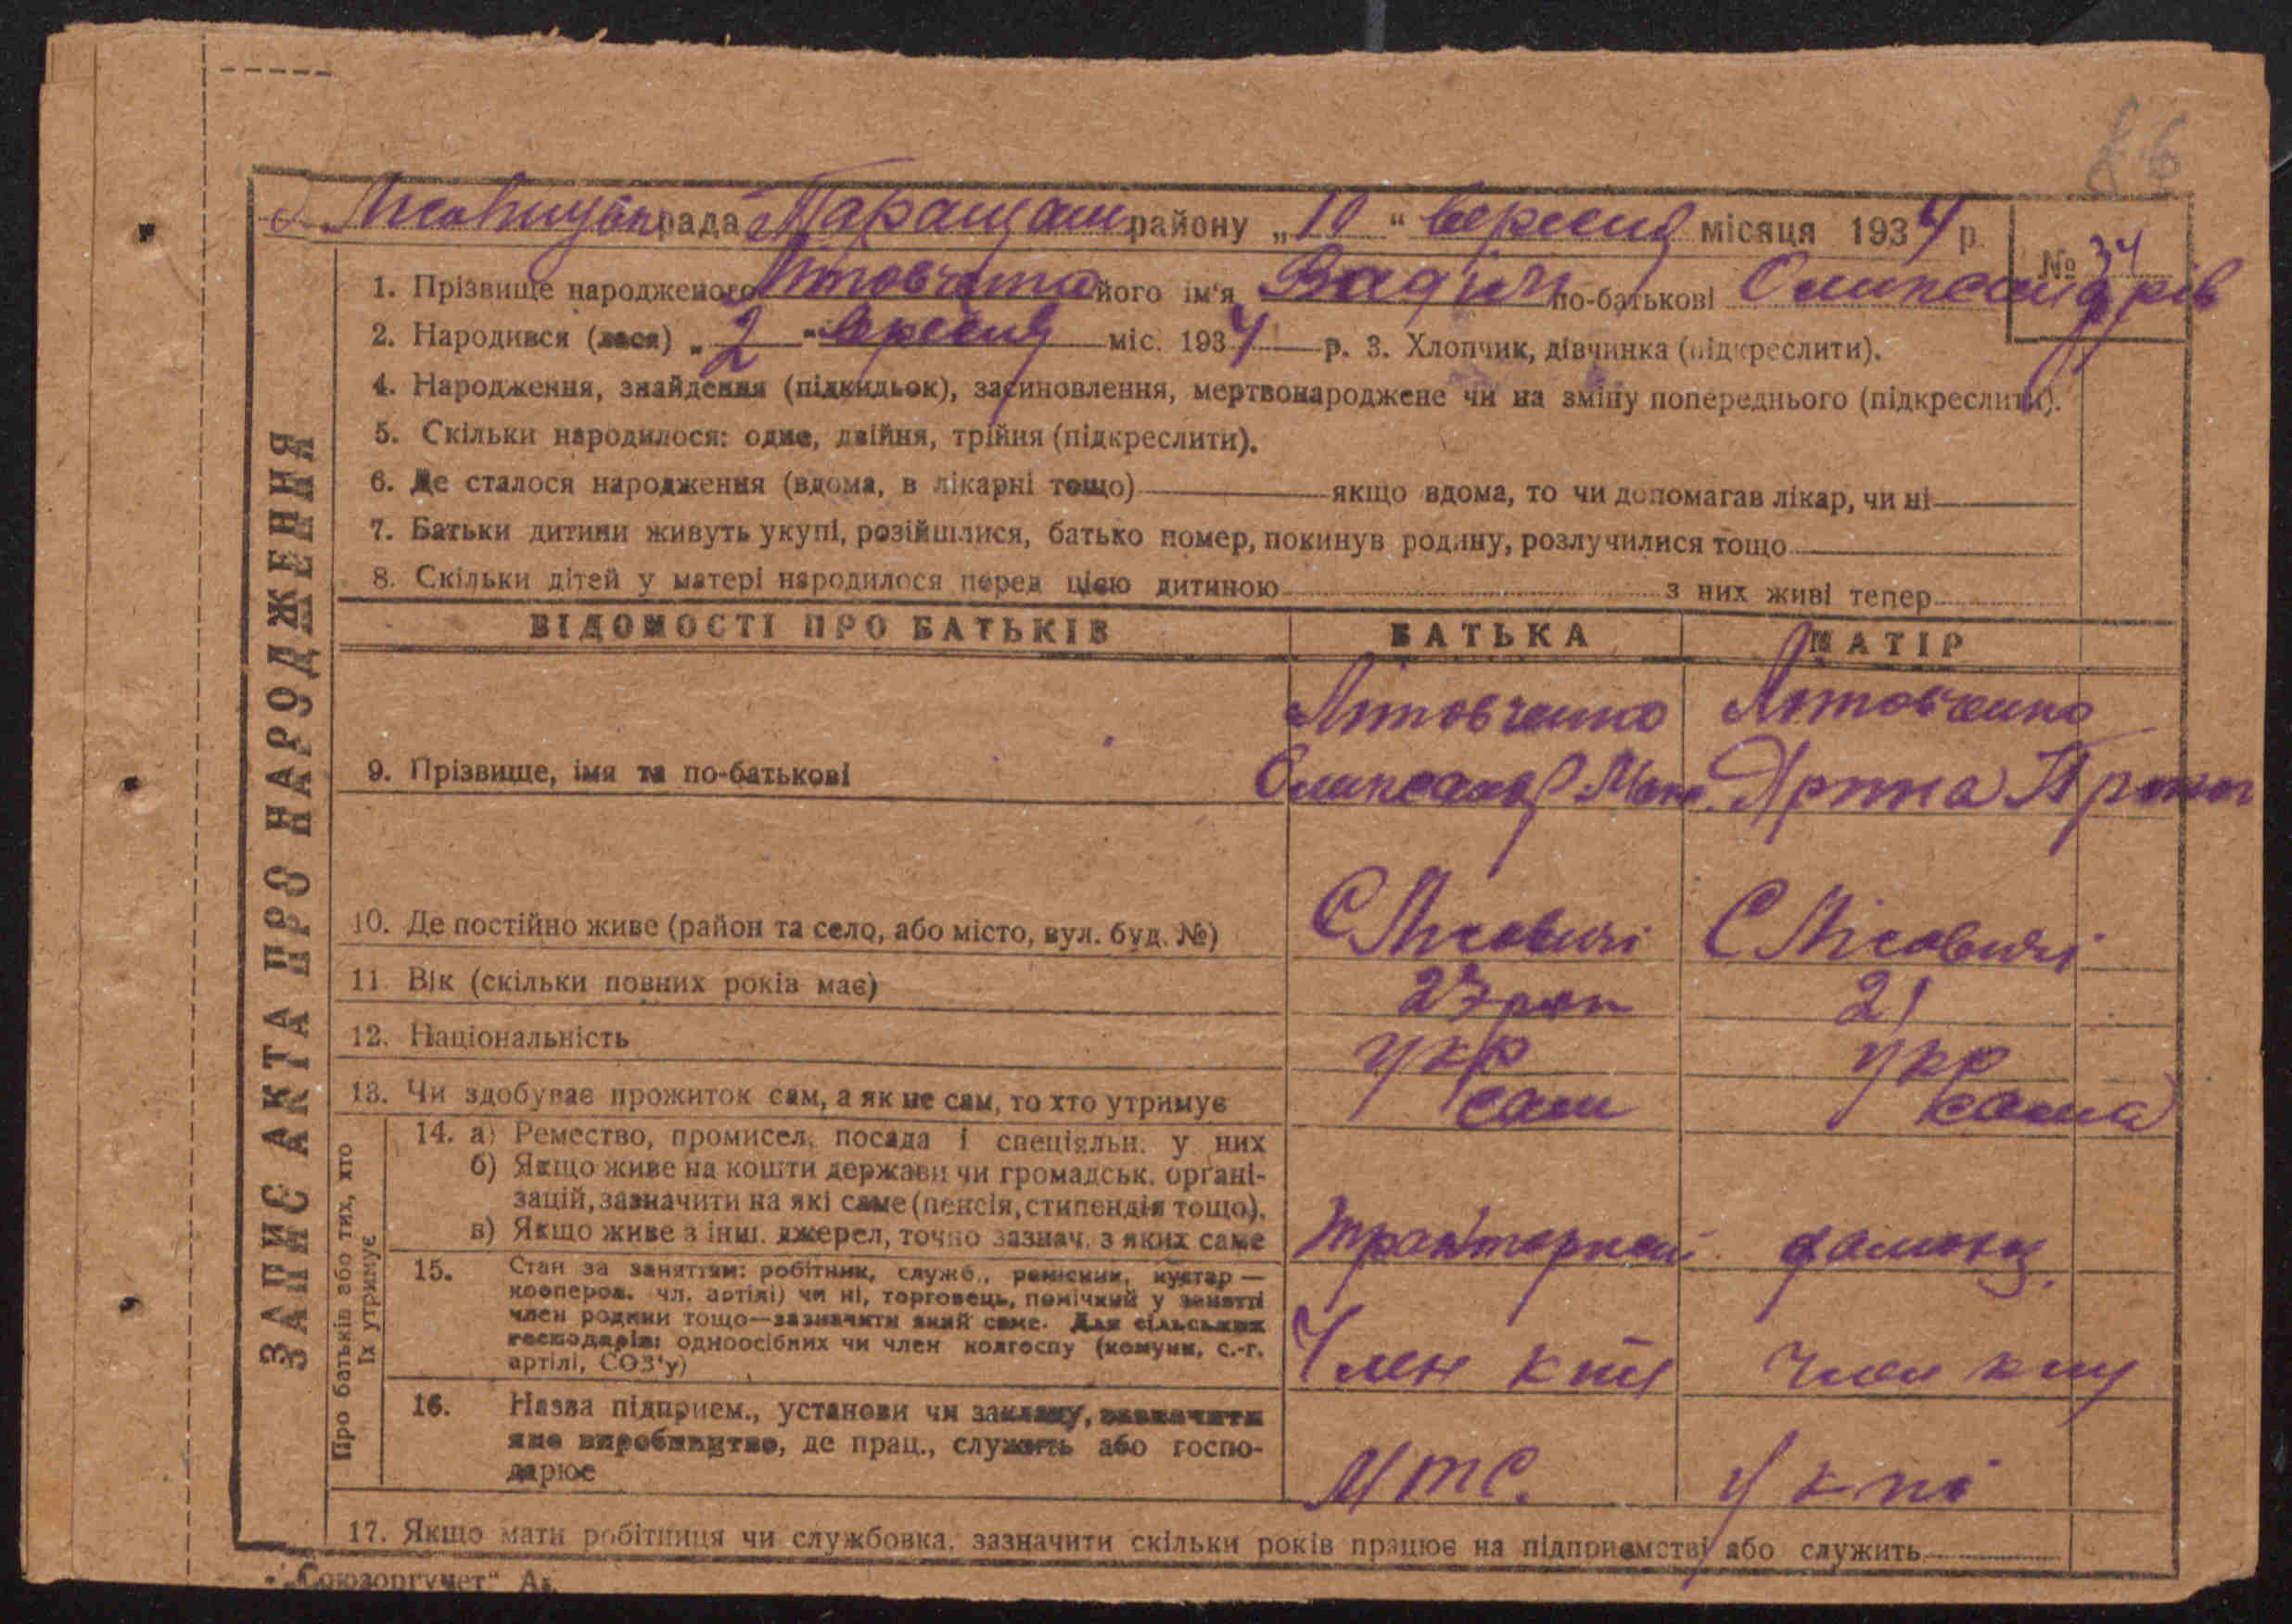 86
с. Лісовицька рада Таращан району „10“ вересня місяця 1934 р. № 34
1. Прізвище народженого Літовченко його ім'я Вадім по-батькові Олександрів
2. Народився (лася) „2“ вересня міс. 1934 р. 3. Хлопчик, дівчинка (підкреслити).
4. Народження, знайдення (підкидьок), засиновлення, мертвонароджене чи на зміну попереднього (підкреслити).
5. Скільки народилося: одне, двійня, трійня (підкреслити).
6. Де сталося народження (вдома, в лікарні тощо) якщо вдома, то чи допомагав лікар, чи ні
7. Батьки дитини живуть укупі, розійшлися, батько помер, покинув родину, розлучилися тощо
8. Скільки дітей у матері народилося перед цією дитиною з них живі тепер
ЗАПИС АКТА ПРО НАРОДЖЕННЯ
ВІДОМОСТІ ПРО БАТЬКІВ БАТЬКА МАТІР
Літовченко Літовченко
9. Прізвище, імя та по-батькові Олександ Мак. Ярина
10. Де постійно живе (район та село, або місто, вул. буд. №) С Лісовичі С Лісовичі
11. Вік (скільки повних років має) 27 рок 21
12. Національність укр укр
13. Чи здобуває прожиток сам, а як не сам, то хто утримує сам сама
Про батьків або тих, хто їх утримує
14. а) Ремество, промисел, посада і спеціяльн. у них
б) Якщо живе на кошти держави чи громадськ. організацій, зазначити на які саме (пенсія, стипендія тощо).
в) Якщо живе з інш. джерел, точно зазнач. з яких саме
15. Стан за заняттям: робітник, служб., ремісник, кустар —
коопероз. чл. артілі) чи ні, торговець, помічний у занятті
член родини тощо—зазначити який саме. Для сільських
господарів: одноосібних чи член колгоспу (комуни, с.-г.
артілі, СОЗ'у) Член
16. Назва підприєм., установи чи закладу, зазначити
яке виробництво, де прац., служить або госпо-
дарює МТС.
17. Якщо мати робітниця чи службовка, зазначити скільки років працює на підприємстві або служить
„Союзоргучет“